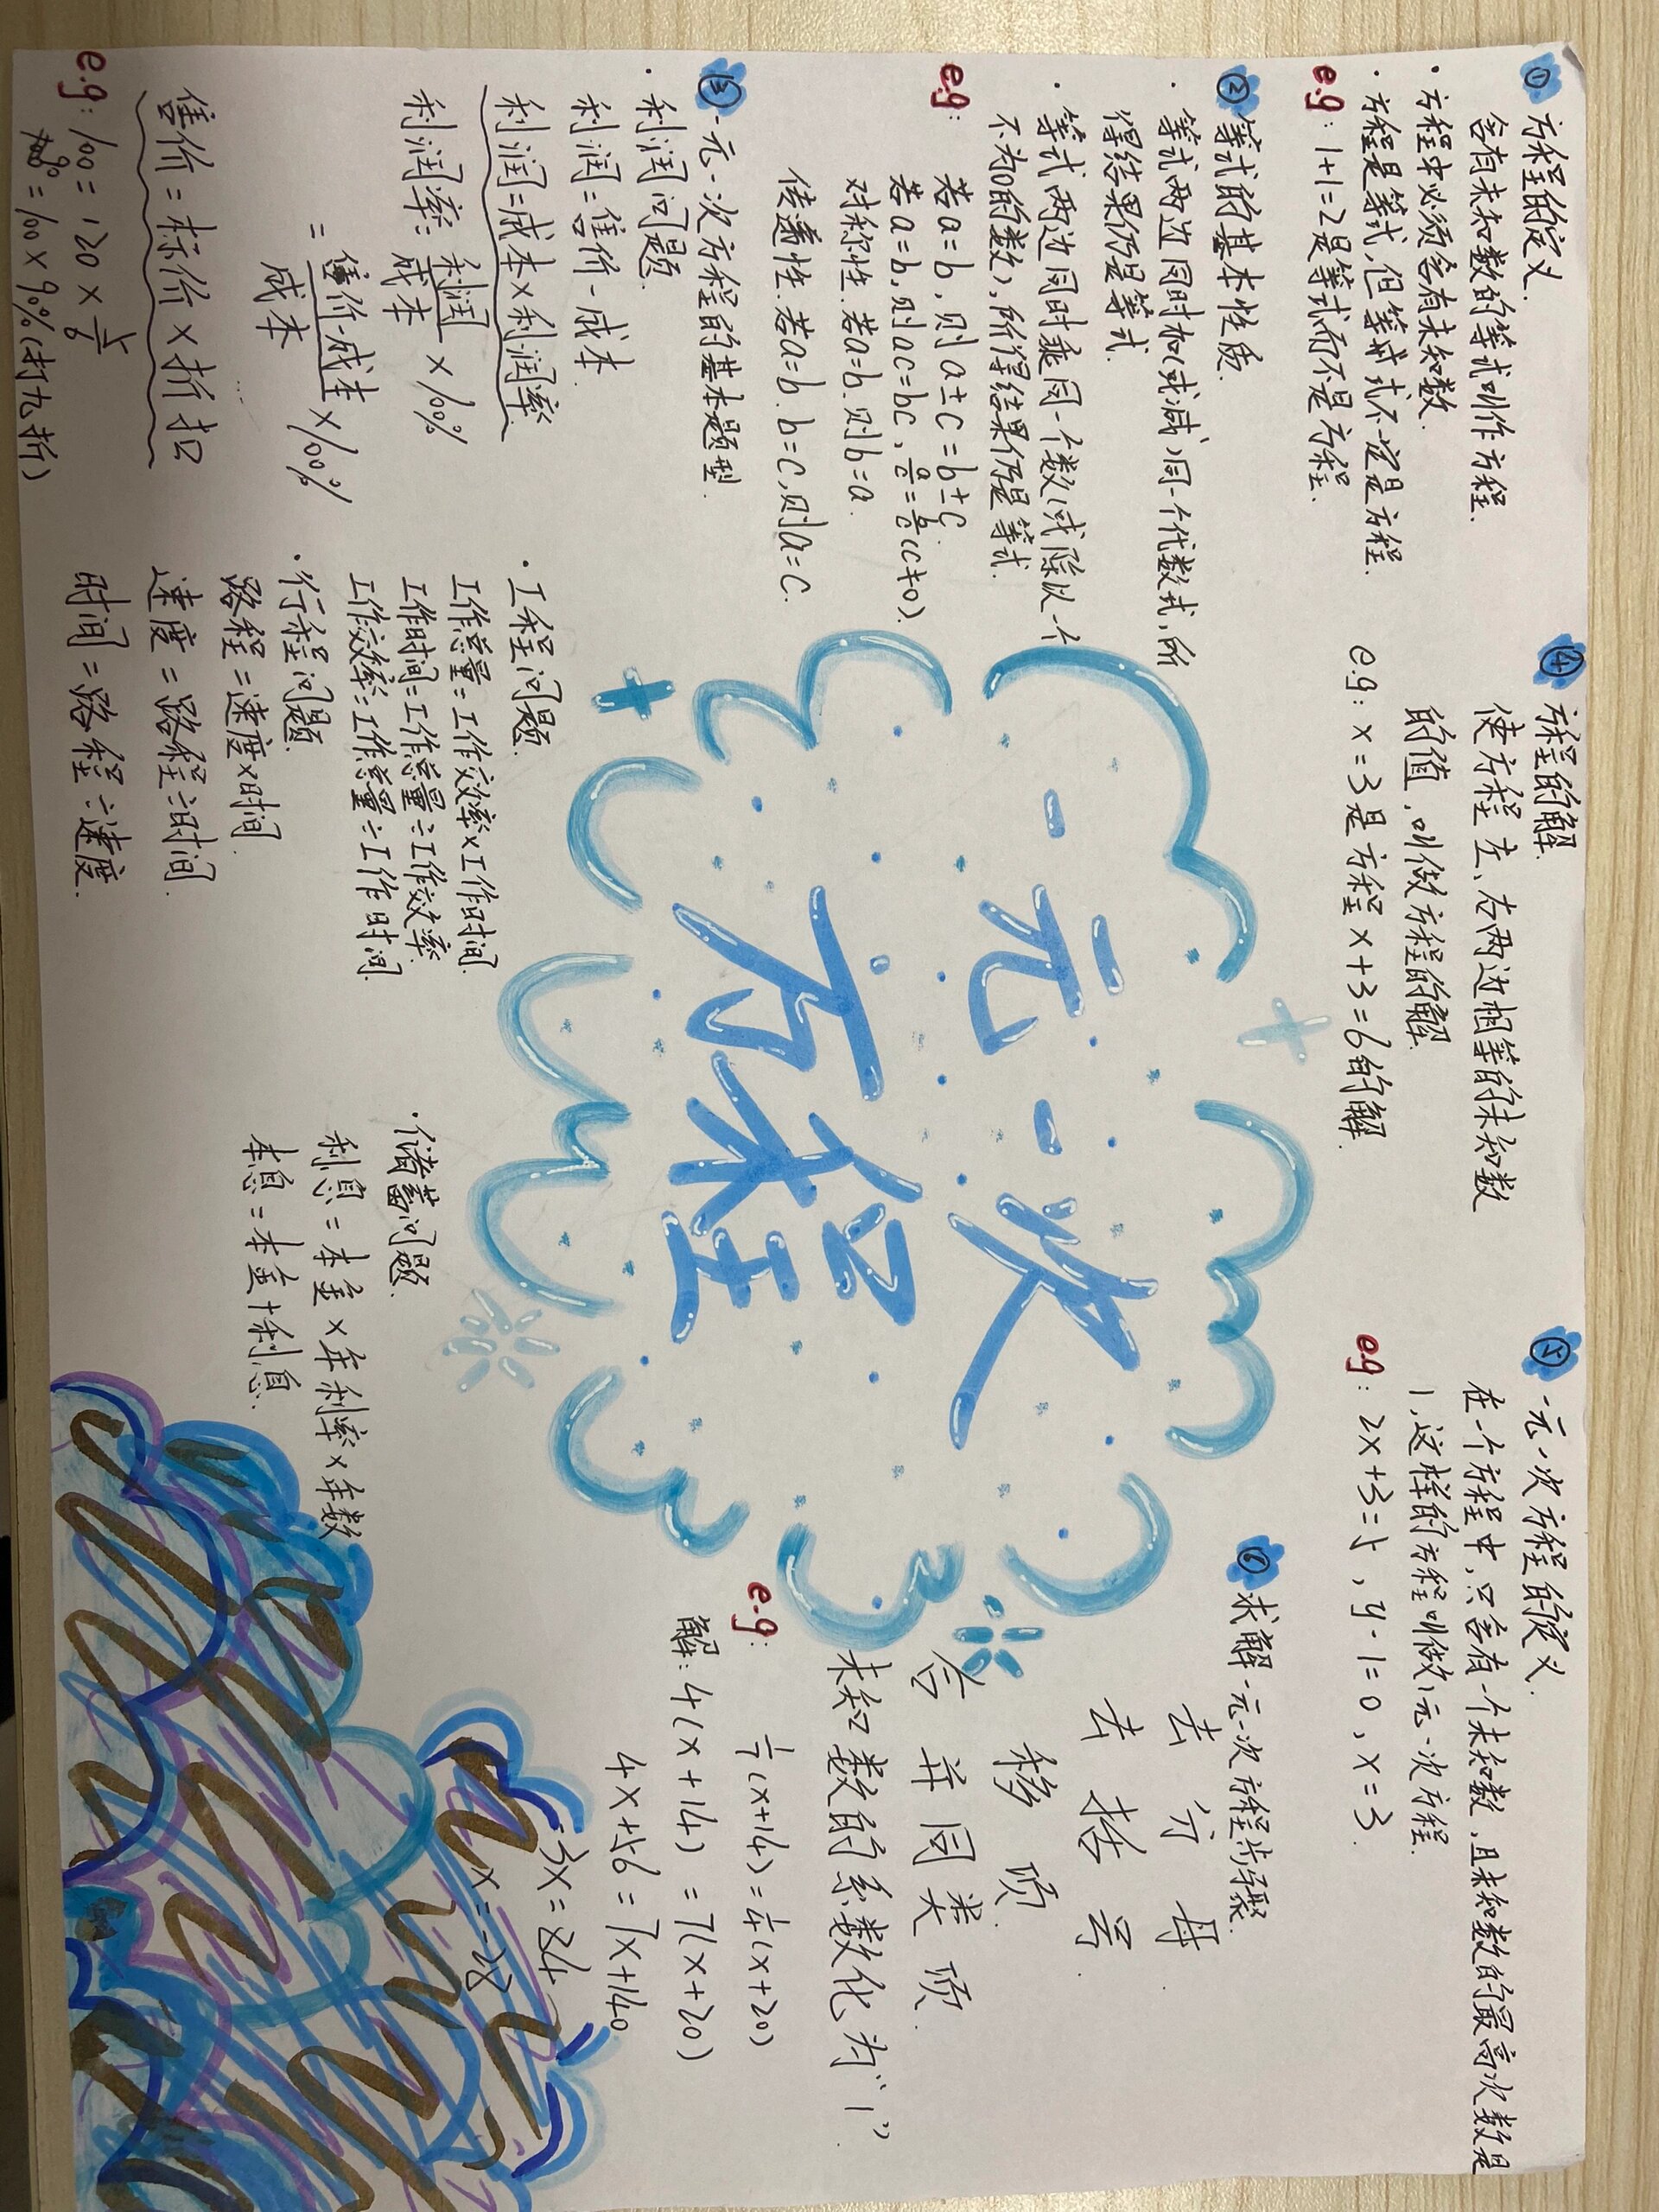 ① 方程的定义.
含有未知数的等式叫作方程.
· 方程中必须含有未知数.
· 方程是等式,但等式不一定是方程.
e.g: 1+1=2是等式而不是方程.
② 等式的基本性质.
· 等式两边同时加(或减)同一个代数式,所
得结果仍是等式.
· 等式两边同时乘同一个数(或除以一个
不为0的数),所得结果仍是等式.
e.g: 若a=b,则a±c=b±c.
若a=b,则ac=bc, a/c=b/c(c≠0).
对称性.若a=b.则b=a.
传递性.若a=b.b=c,则a=c.
③ 一元一次方程的基本题型.
· 利润问题.
利润=售价-成本.
利润=成本×利润率.
利润率=利润/成本×100%
=售价-成本/成本×100%
售价=标价×折扣
e.g: 100=120×5/6
90=100×90%(打九折)
· 工程问题.
工作总量=工作效率×工作时间.
工作时间=工作总量÷工作效率.
工作效率=工作总量÷工作时间.
· 行程问题.
路程=速度×时间.
速度=路程÷时间.
时间=路程÷速度.
· 储蓄问题.
利息=本金×年利率×年数
本息=本金+利息.
一元一次
方程
④ 方程的解.
使方程左、右两边相等的未知数
的值,叫做方程的解.
e.g: x=3是方程x+3=6的解.
⑤ 一元一次方程的定义.
在一个方程中,只含有一个未知数,且未知数的最高次数是
1,这样的方程叫做一元一次方程.
e.g: 2x+3=5, y-1=0, x=3.
⑥ 求解一元一次方程步骤.
去分母.
去括号.
移项.
合并同类项.
未知数的系数化为“1”.
e.g: 1/7(x+14)=1/4(x+20)
解: 4(x+14)=7(x+20)
4x+56=7x+140
-3x=84
x=-28